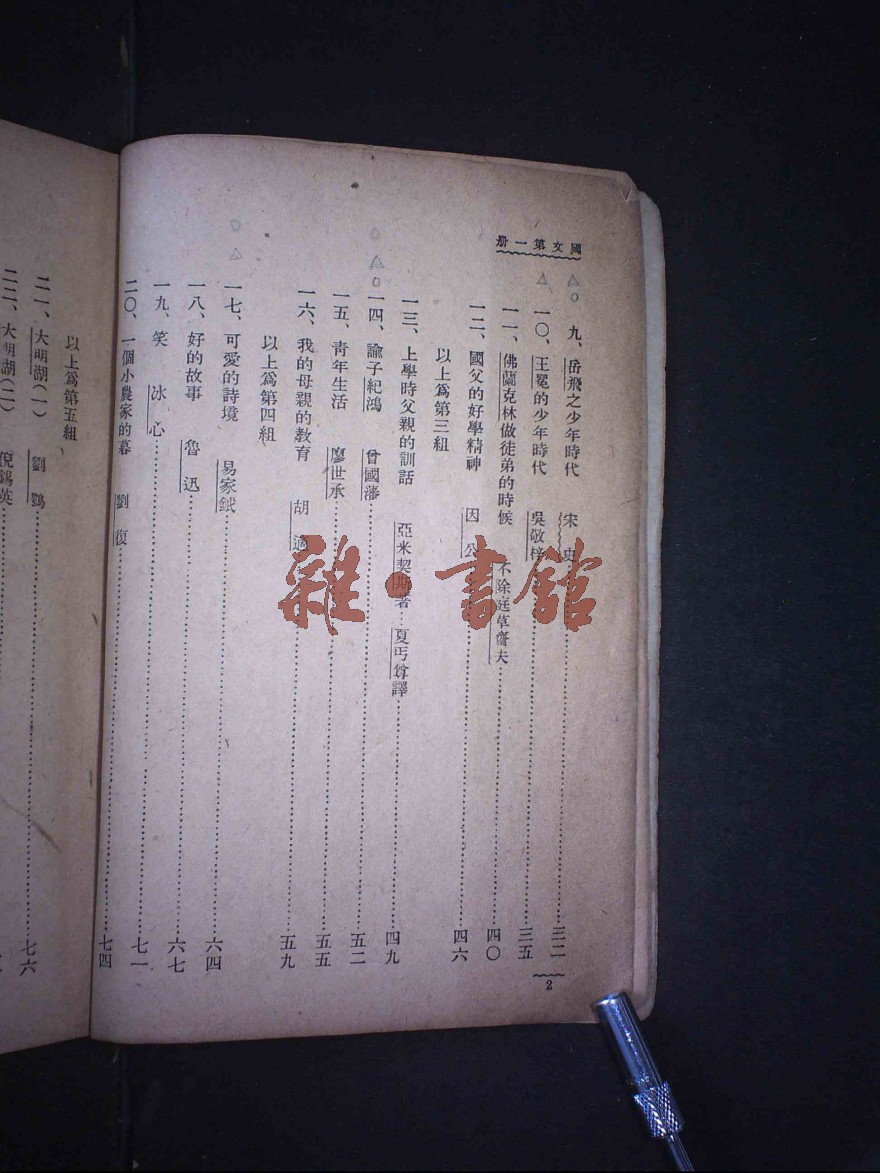 國文第一册
九、岳飛之少年時代 宋史………三二
一〇、王冕的少年時代 吳敬梓………三五
一一、佛蘭克林做徒弟的時候 不除庭草齋夫………四〇
一二、國父的好學精神 因公………四六
以上爲第三組
一三、上學時父親的訓話 亞米契斯著…夏丏尊譯………四九
一四、諭子紀鴻 曾國藩………五二
一五、靑年生活 廖世承………五五
一六、我的母親的教育 胡適………五九
以上爲第四組
一七、可愛的詩境 易家鉞………六四
一八、好的故事 魯迅………六七
一九、笑 冰心………七一
二〇、一個小農家的暮 劉復………七四
2
以上爲第五組
二一、大明湖(一) 劉鶚………七六
二二、大明湖(二) 倪錫英
雜·書館